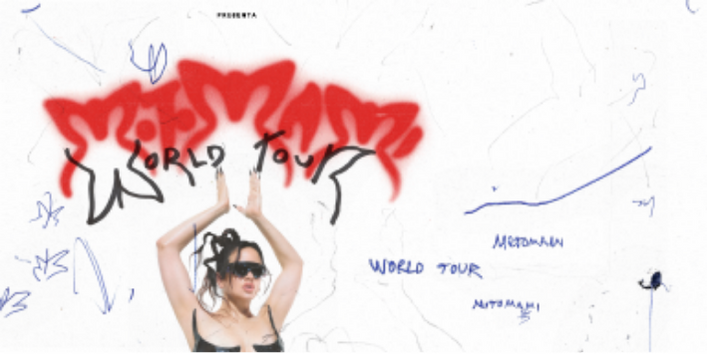 PRESENTA
MOTOMAMI
WORLD TOUR
MOTOMAMI
WORLD TOUR
MOTOMAMI